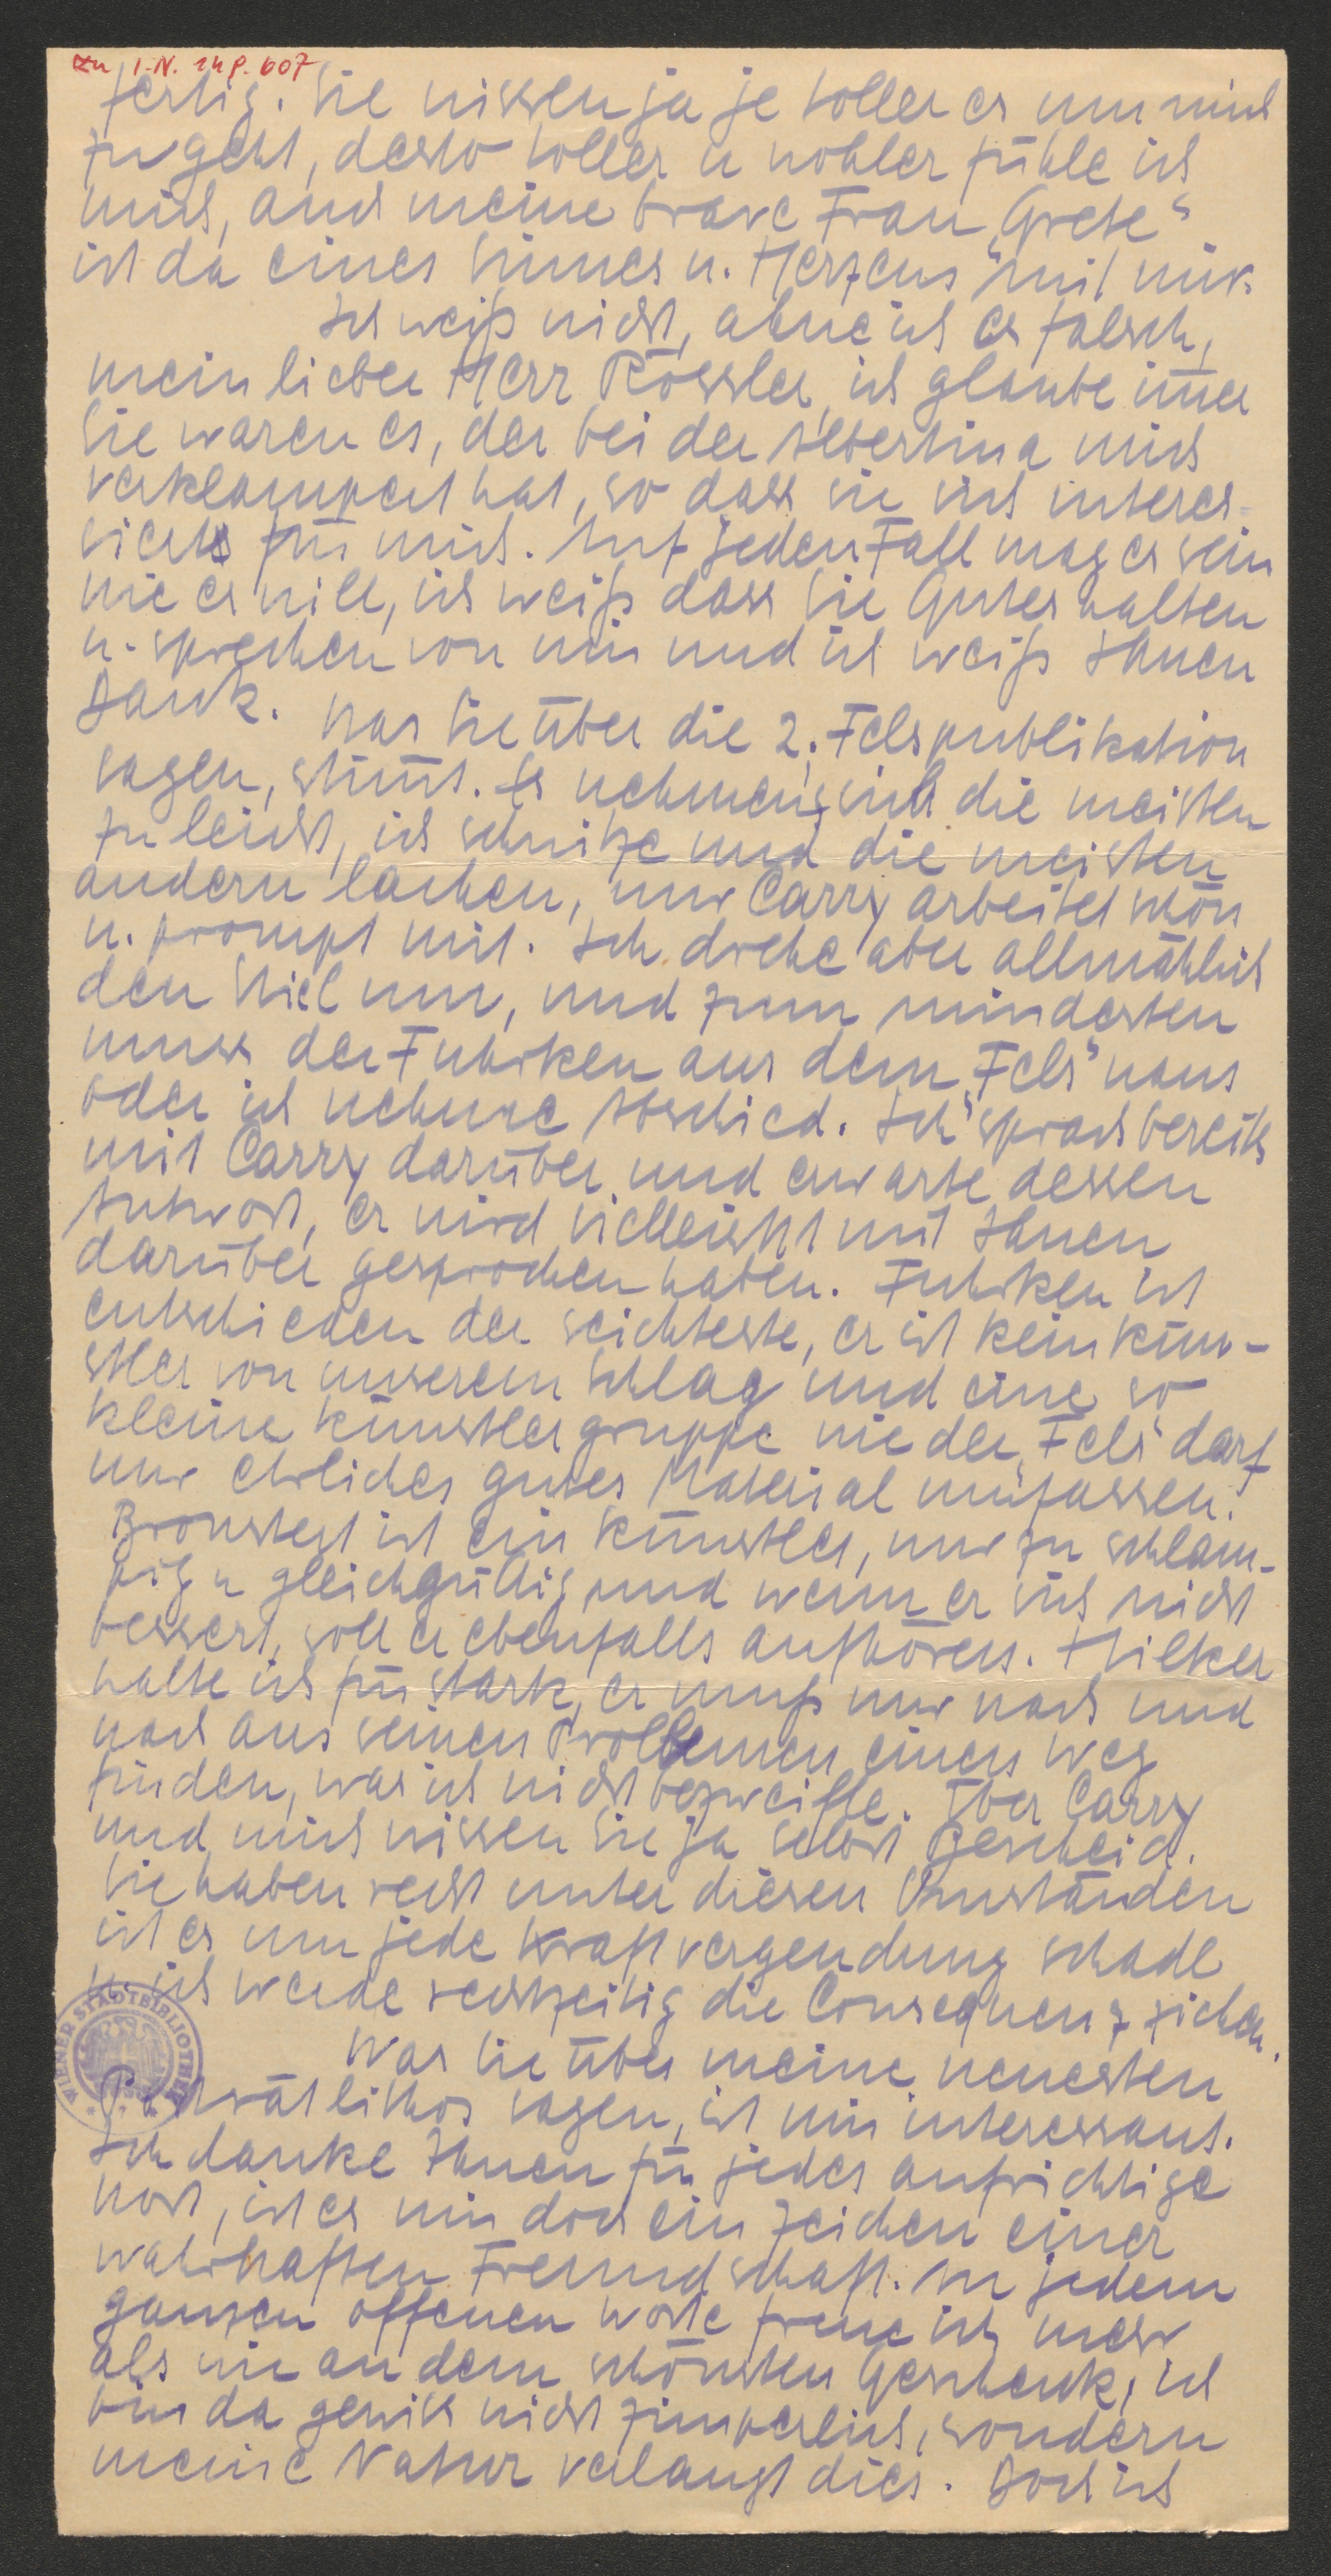 zu I.N. 148.607
fertig. Sie wissen ja je toller es um mich
zugeht, desto toller u wohler fühle ich
mich, auch meine brave Frau „Grete“
ist da „eines Sinnes u. Herzens“ mit mir.
Ich weiß nicht, ahne ich es falsch,
mein lieber Herr Rössler, ich glaube im̅er
Sie waren es, der bei der Albertina mich
verklampert hat, so dass sie sich interes-
sierts für mich. Auf jeden Fall mag es sein
wie es will, ich weiß dass Sie Gutes halten
u. sprechen von mir und ich weiß Ihnen
Dank. Was Sie über die 2. Felspublikation
sagen, stim̅t. Es nehmen sich die meisten
zu leicht, ich schwitze und die meisten
andern lachen, nur Carry arbeitet schön
u. prompt mit. Ich drehe aber allmählich
den Stiel um, und zum mindesten
muss der Fuhrken aus dem „Fels“ naus
oder ich nehme Abschied. Ich sprach bereits
mit Carry darüber und erwarte dessen
Antwort, er wird vielleicht mit Ihnen
darüber gesprochen haben. Fuhrken ist
entschieden der seichteste, er ist kein Kün-
stler von unserem Schlag und eine so
kleine Künstlergruppe wie der „Fels“ darf
nur ehrliches gutes Material umfassen.
Bronstert ist ein Künstler, nur zu schlam-
pig u gleichgültig und wenn er sich nicht
bessert, soll er ebenfalls aufhören. Hilker
halte ich für stark, er muß nur nach und
nach aus seinen Problemen einen Weg
finden, was ich nicht bezweifle. Über Carry
und mich wissen Sie ja selbst Bescheid.
Sie haben recht unter diesen Umständen
ist es um jede Kraftvergeudung schade
u. ich werde rechtzeitig die Consequenz ziehen.
Was Sie über meine neuesten
Porträtlithos sagen, ist mir interessant.
Ich danke Ihnen für jedes aufrichtige
Wort, ist es mir doch ein Zeichen einer
wahrhaften Freundschaft. An jedem
ganzen offenen Worte freue ich mehr
als wie an dem schönsten Geschenk, ich
bin da gewiss nicht zimperlich, sondern
meine Natur verlangt dies. Doch ich
WIENER STADTBIBLIOTHEK